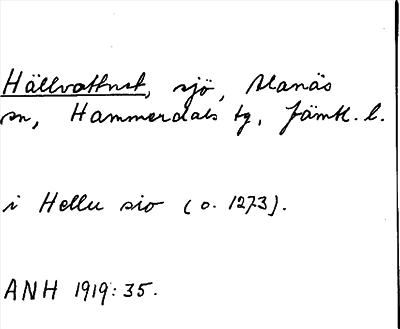 Hällvattnet, sjö, Alanäs
sn, Hammerdals tg, Jämtl. l.
i Hellu sio (o. 1273).
ANH 1919: 35.